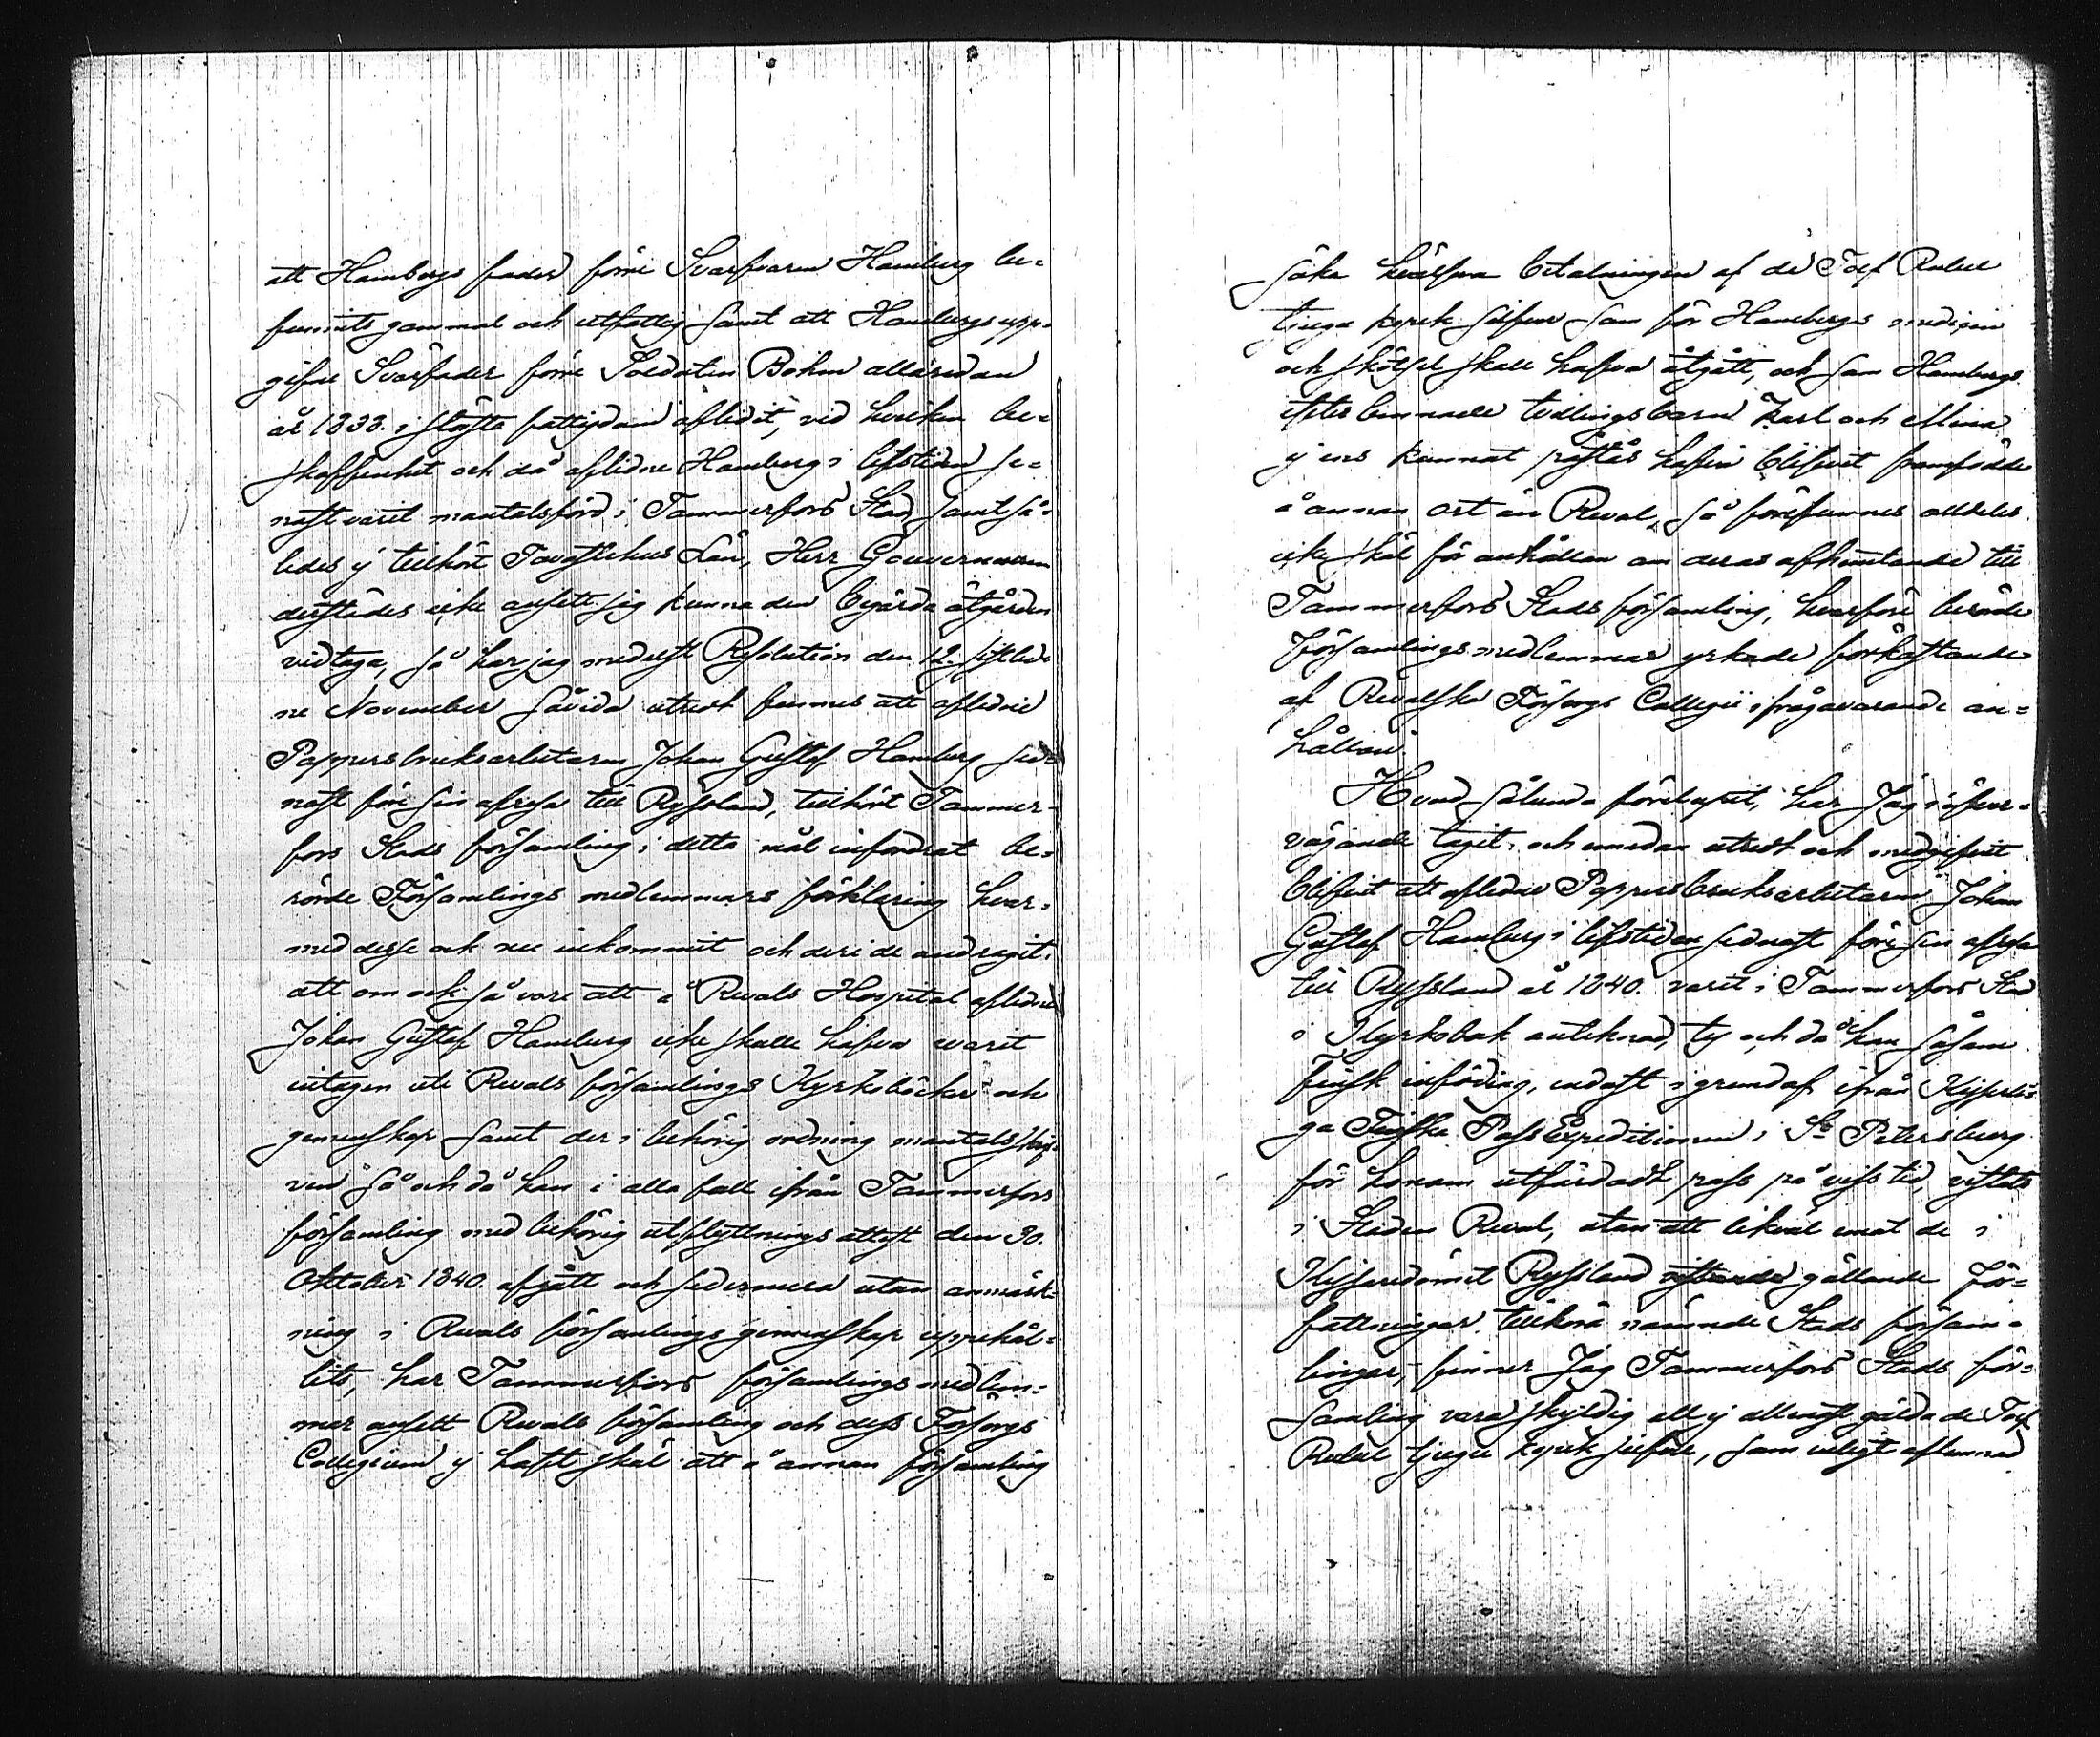 att Hambergs fader förre Svarfvaren Hamberg be=
funnits gammal och utfattig samt att Hambergs upp=
gifne Svärfader förre Soldaten Böhm allaredan
år 1833. i största fattigdom aflidit, vid hvilken be=
skaffenhet och då aflidne Hamberg i lifstiden se=
nast varit mantalsförd i Tammerfors Stad samt så=
ledes ej tillhört Tavastehus Län, Herr Gouverneuren
derstädes icke ansett sig kunna den begärda åtgärden
vidtaga, så har jag medelst Resolution den 12. sistlid=
ne November såvida utredt finnes att aflidne
Pappersbruksarbetaren Johan Gustaf Hamberg sed=
nast före sin afresa till Ryssland, tillhört Tammer=
fors Stads församling i detta mål infordrat be=
rörde Församlings medlemmars förklaring hvar=
med desse ock nu inkommit och deri de andragit,
att om ock så vore att å Revals Hospital aflidne
Johan Gustaf Hamberg icke skulle hafva varit
intagen uti Revals församlings Kyrkoböcker och
gemenskap samt der i behörig ordning mantalsskrif=
ven så och då han i alla fall ifrån Tammerfors
församling med behörig utflyttnings attest den 30.
Oktober 1840. afgått och sedermera utan anmärk=
ning i Revals församlings gemenskap uppehål=
lits, har Tammerfors församlings medlem=
mar ansett Revals församling och dess Försorgs
Collegium ej haft skäl att å annan församling
söka kräfva betalningen af de Tolf Rubel
tjugu kopek silfver som för Hambergs medicin
och skötsel skall hafva åtgått, och som Hambergs
efterlemnade tvillingsbarn Karl och Mina
ej ens kunnat påstås hafva blifvit framfödde
å annan ort än Reval, så förefunnes alldeles
icke skäl för anhållan om deras afhemtande till
Tammerfors Stads församling, hvarföre berörde
Församlings medlemmar yrkade förkastande
af Revalska Försorgs Collegii ifrågavarande an=
hållan.
Hvad sålunda förelupit, har Jag i öfver=
vägande tagit, och emedan utredt och medgifvit
blifvit att aflidne Pappersbruksarbetaren Johan
Gustaf Hamberg i lifstiden sednast före sin afresa
till Ryssland år 1840. varit i Tammerfors Stad
i Kyrkobok antecknad, ty och då han såsom
finsk inföding, endast i grund af ifrån Kejserli=
ga Finska Pass Expeditionen i St Petersburg
för honom utfärdadt pass på viss tid, vistats
i Staden Reval, utan att likväl emot de i
Kejsaredömet Ryssland gällande för=
fattningar tillhöra nämnde Stads försam=
lingar, finner Jag Tammerfors Stads för=
samling vara skyldig att ej allenast gälda de Tolf
Rubel tjugu kopek silfver, som enligt aflemnad